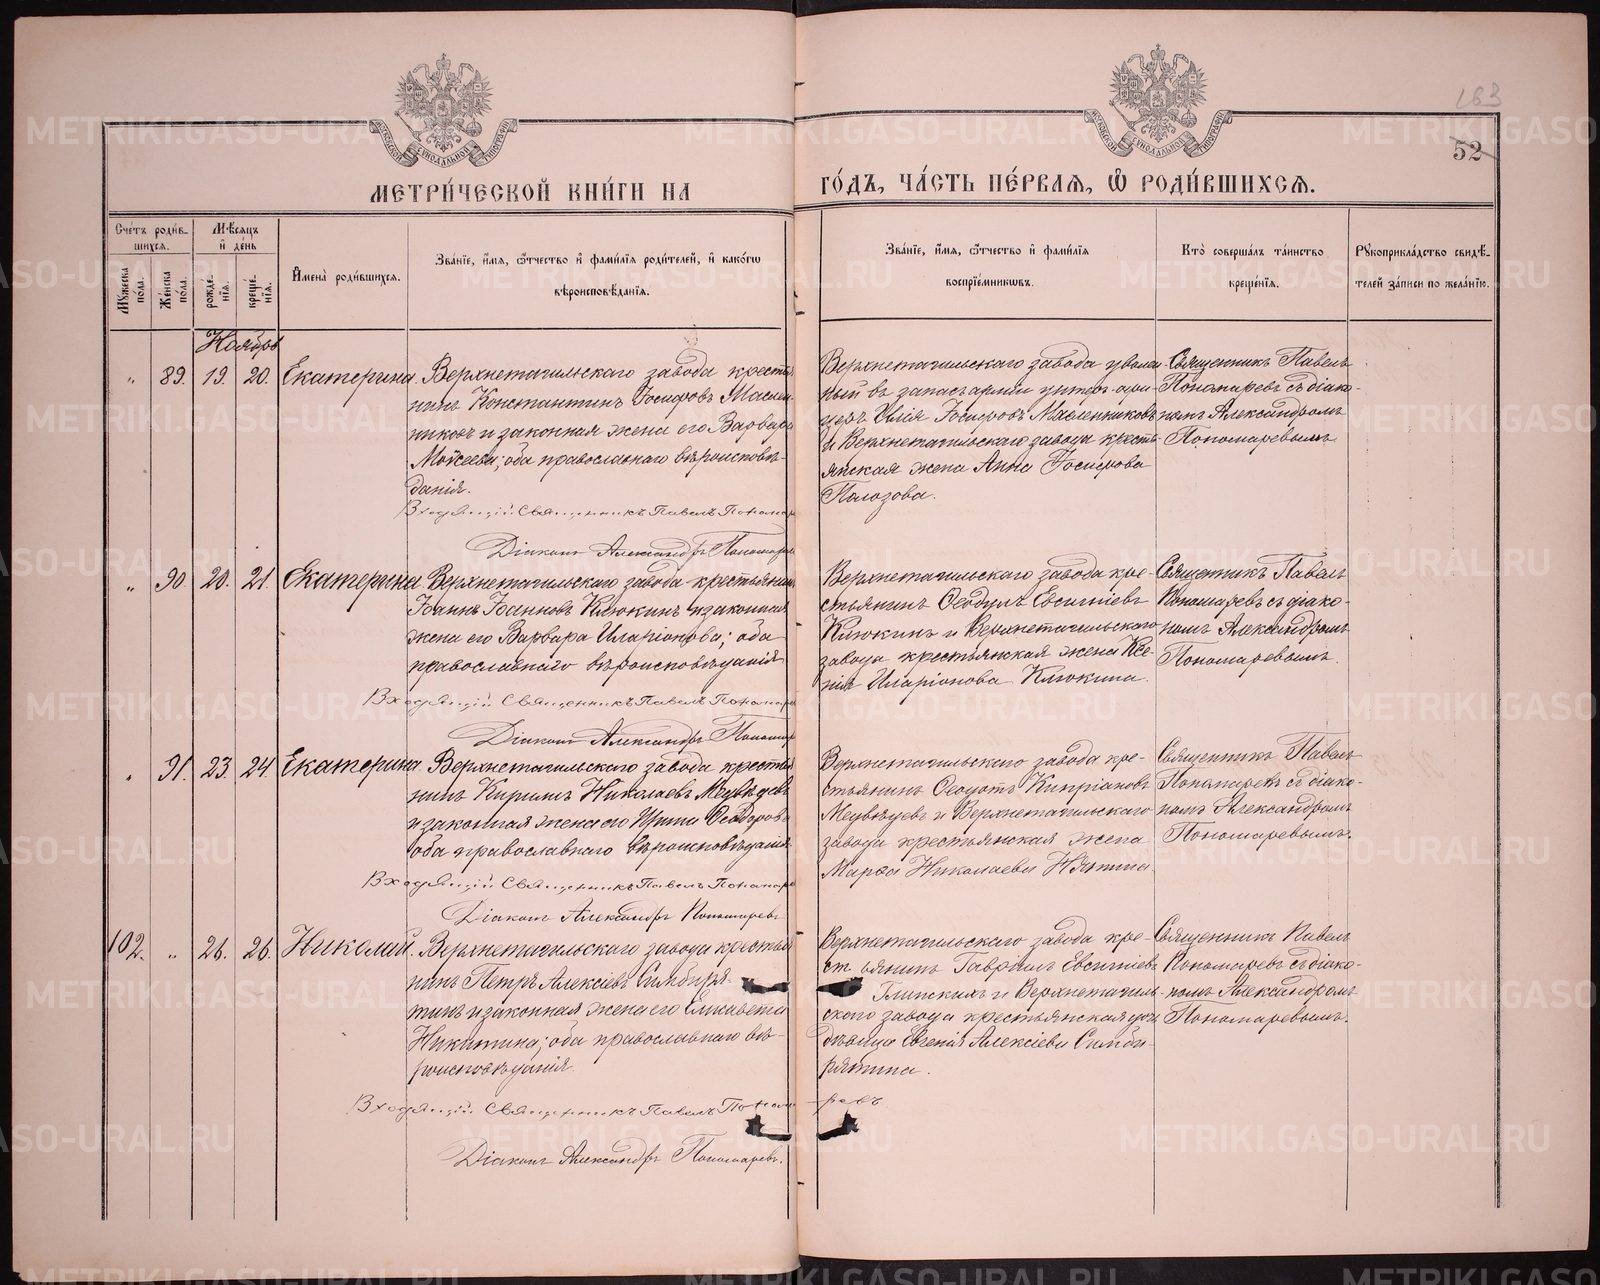 183
52
МЕТРИ́ЧЕСКОЙ КНИ́ГИ НА
ГО́ДЪ, ЧА́СТЬ ПЕ́РВАЯ, Ѿ РОДИ́ВШИХСЯ.
Сче́тъ роди́в-
шихся.
Мужеска по́ла.
Же́нска по́ла.
Мѣ́сяцъ
и҆ де́нь
рожде́-
нїя.
креще́-
нїя.
И҆мена̀ роди́вшихся.
Зва́нїе, и҆́мя, ѻ҆́тчество и҆ фами́лїя роди́телей, и҆ како́гѡ
вѣроисповѣ́данїя.
Зва́нїе, и҆́мя, ѻ҆́тчество и҆ фами́лїя
воспрїе́мникѡвъ.
Кто̀ соверша́лъ та́инство
креще́нїя.
Рꙋкоприкла́дство свидѣ́-
телей за́писи по жела́нїю.
Ноябрь
„ 89. 19. 20. Екатерина.
Верхнетагильскаго завода кресть
нинъ Константинъ Іосифовъ Маслен
никовъ и законная жена его Варвара
Моѵсеева; оба православнаго вѣроисповѣ-
данія.
Входящій Священникъ Павелъ Понома
Діаконъ Александръ Пономаре
Верхнетагильскаго завода уволен
ный въ запасъ арміи унтеръ-офи-
церъ Илія Іосифовъ Масленниковъ
и Верхнетагильскаго завода кресть
янская жена Анна Іосифова
Полозова.
Священникъ Павелъ
Пономаревъ съ діако-
номъ Александромъ
Пономаревымъ.
„ 90. 20. 21. Екатерина
Верхнетагильскаго завода крестьянинъ
Іоаннъ Іоанновъ Клюкинъ и законная
жена его Варвара Иларіонова; оба
православнаго вѣроисповѣданія
Входящій Священникъ Павелъ Пономаре
Діаконъ Александръ Пономар
Верхнетагильскаго завода кре-
стьянинъ Ѳеодулъ Евсигніевъ
Клюкинъ и Верхнетагильскаго
завода крестьянская жена Ксе-
нія Иларіонова Клюкина.
Священникъ Павелъ
Пономаревъ съ діако-
номъ Александромъ
Пономаревымъ.
„ 91. 23. 24 Екатерина
Верхнетагильскаго завода крестья
нинъ Кириллъ Николаевъ Медвѣдевъ
и законная жена его Ирина Ѳеодорова
оба православнаго вѣроисповѣданія
Входящій Священникъ Павелъ Пономаре
Діаконъ Александръ Пономаревъ
Верхнетагильскаго завода кре-
стьянинъ Ѳеодотъ Кипріановъ
Медвѣдевъ и Верхнетагильскаго
завода крестьянская жена
Марѳа Николаева
Священникъ Павелъ
Пономаревъ съ діако-
номъ Александромъ
Пономаревымъ.
102. „ 26. 26. Николай.
Верхнетагильскаго завода крестья
нинъ Петръ Алексіевъ Симбиря-
тинъ и законная жена его Елисавета
Никитина; оба православнаго вѣ-
роисповѣданія.
Входящій Священникъ Павелъ Понома-ревъ
Діаконъ Александръ Пономаревъ.
Верхнетагильскаго завода кре-
стьянинъ Гавріилъ Евсигніевъ
Глинскихъ и Верхнетагиль-
скаго завода крестьянская
дѣвица Евгенія Алексіева Симби-
рятина.
Священникъ Павелъ
Пономаревъ съ діако-
номъ Александромъ
Пономаревымъ.